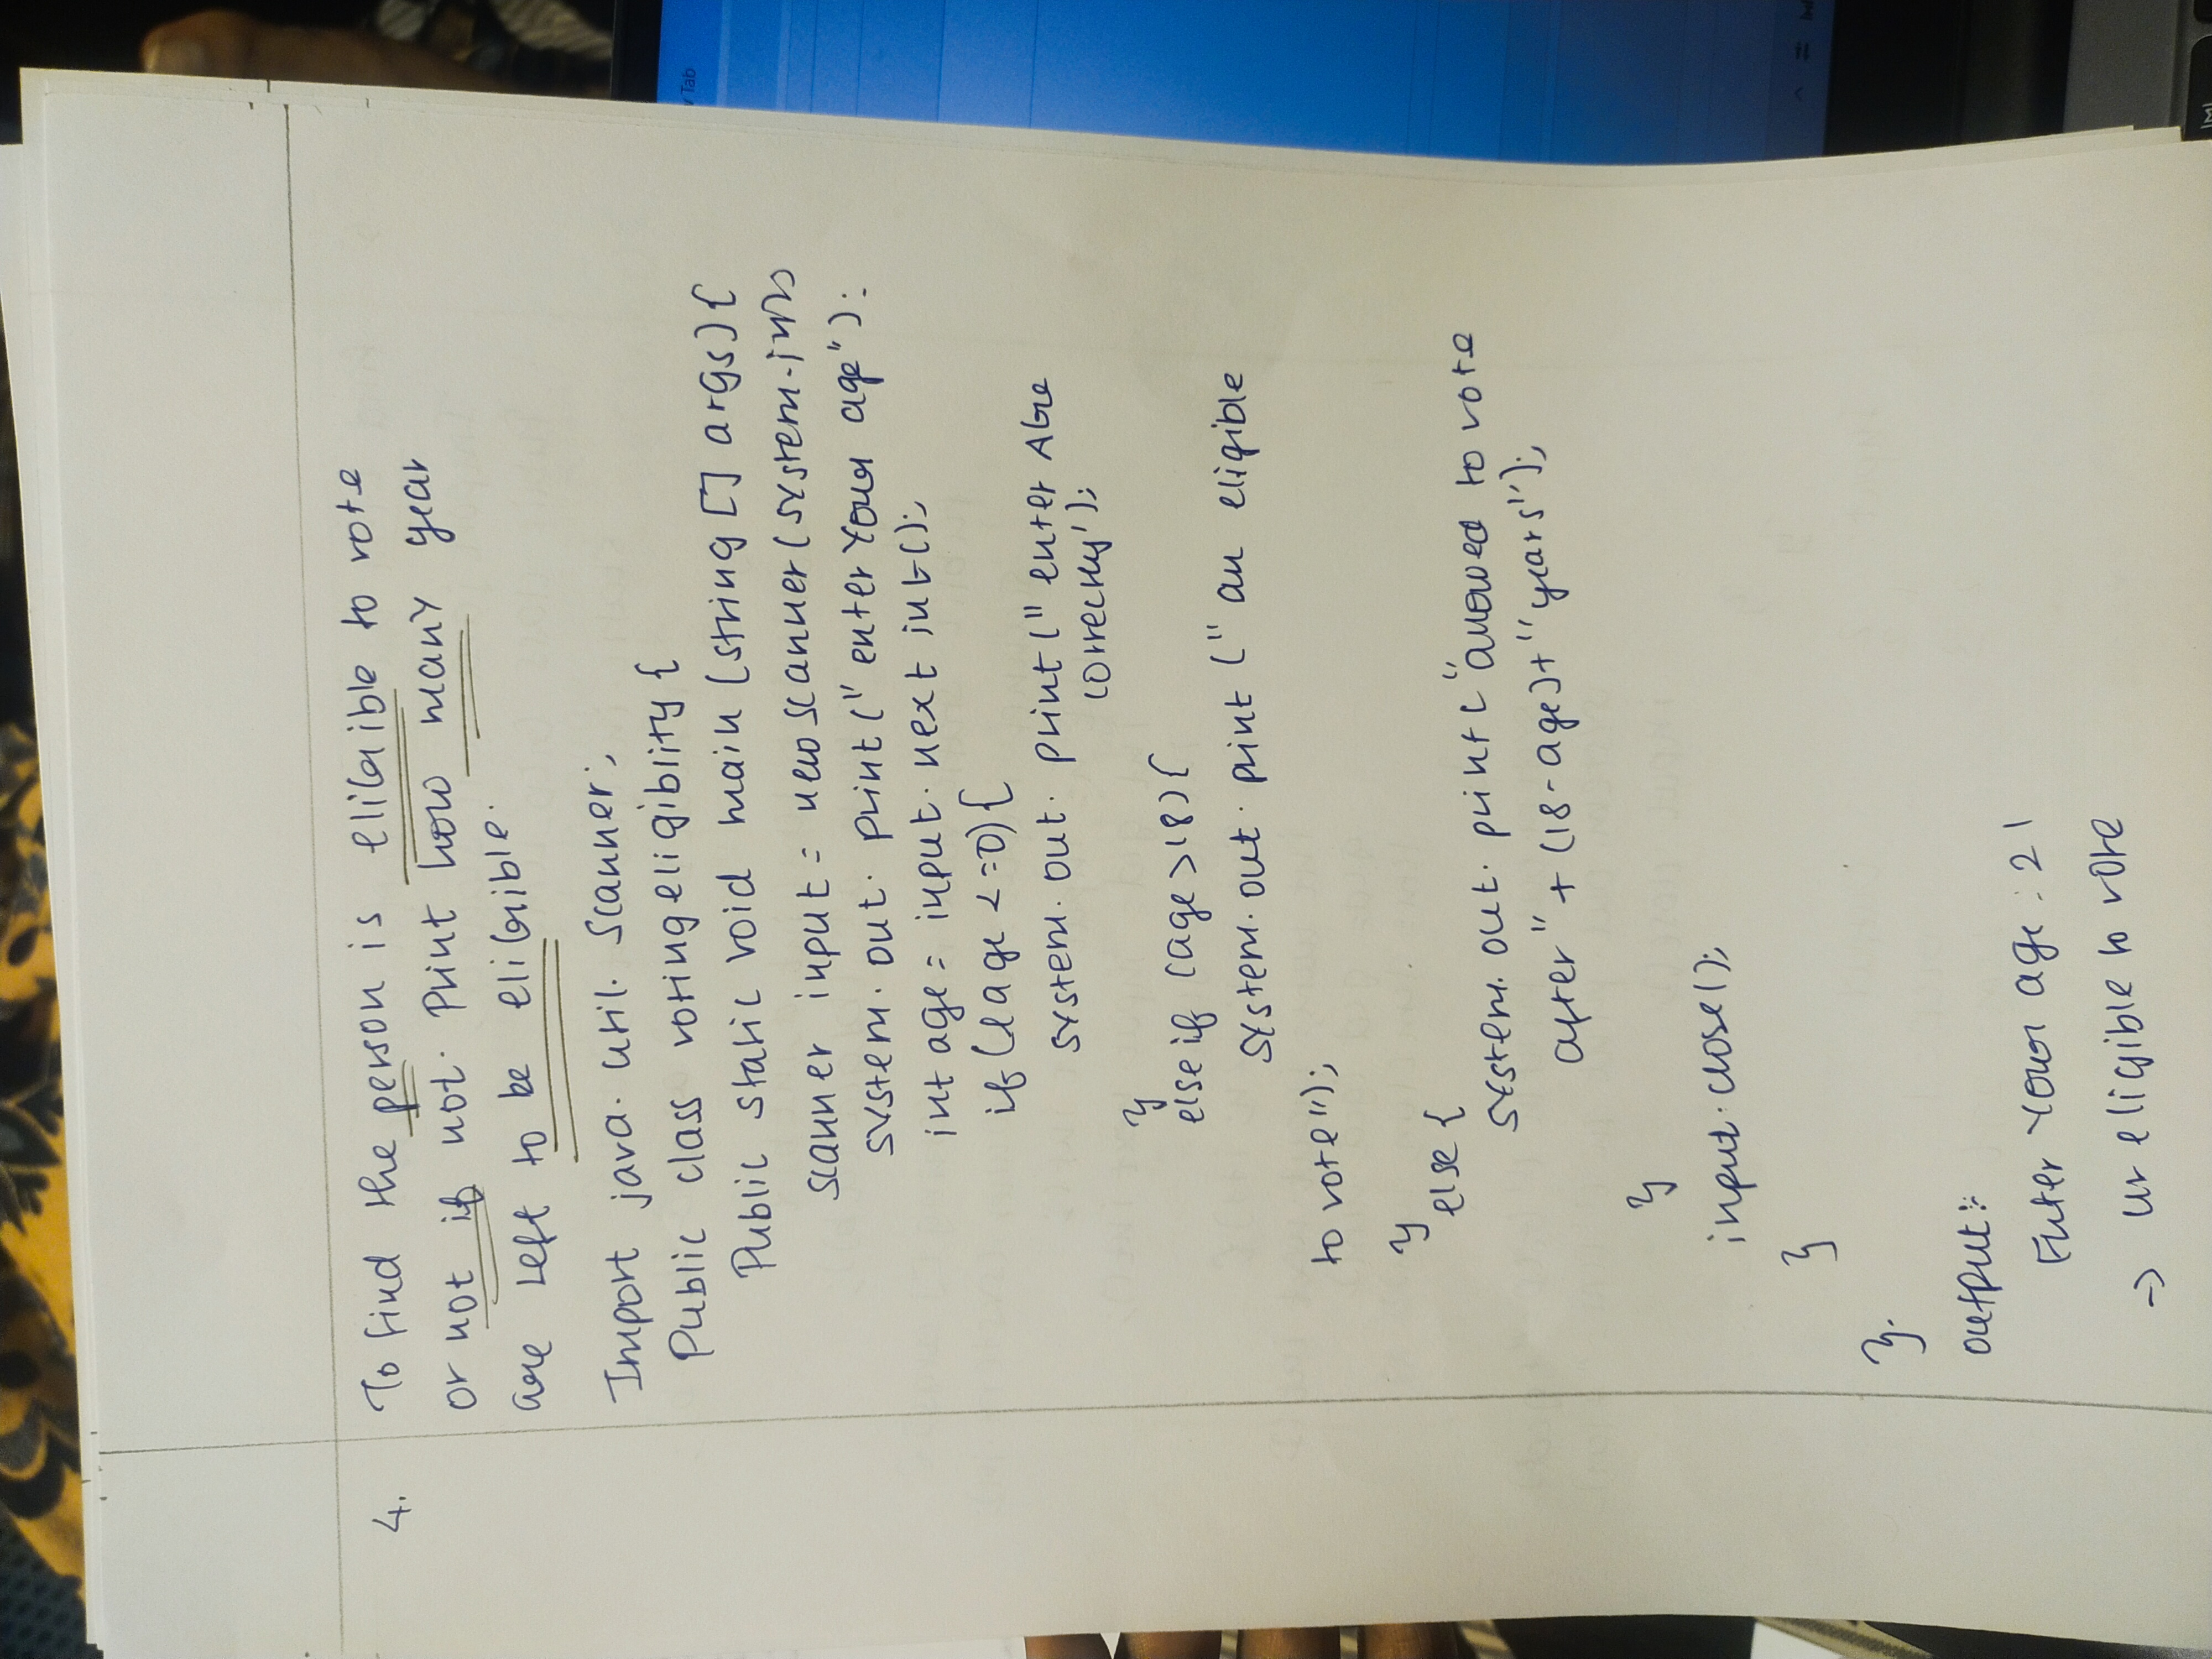 4. To find the person is eliGible to vote
or not if not. Print how many year
are Left to be eliGible.
Import java. util. Scanner;
Public class votingeligiblity {
Public static void main (string [] args) {
scanner input = new scanner (system.in);
system. out. print (" enter Your age" ):
int age = input. next int ();
if (age <=0) {
system. out. print (" enter AGe
correctly');
}
else if (age >18) {
system. out. print (" an eligible
to vote");
}
else {
system. out. print ( "allowed to vote
after " + (18 - age) + "years");
}
input. close ();
}
}.
output:-
Enter Your age : 21
→ ur eligible to vote
Tab